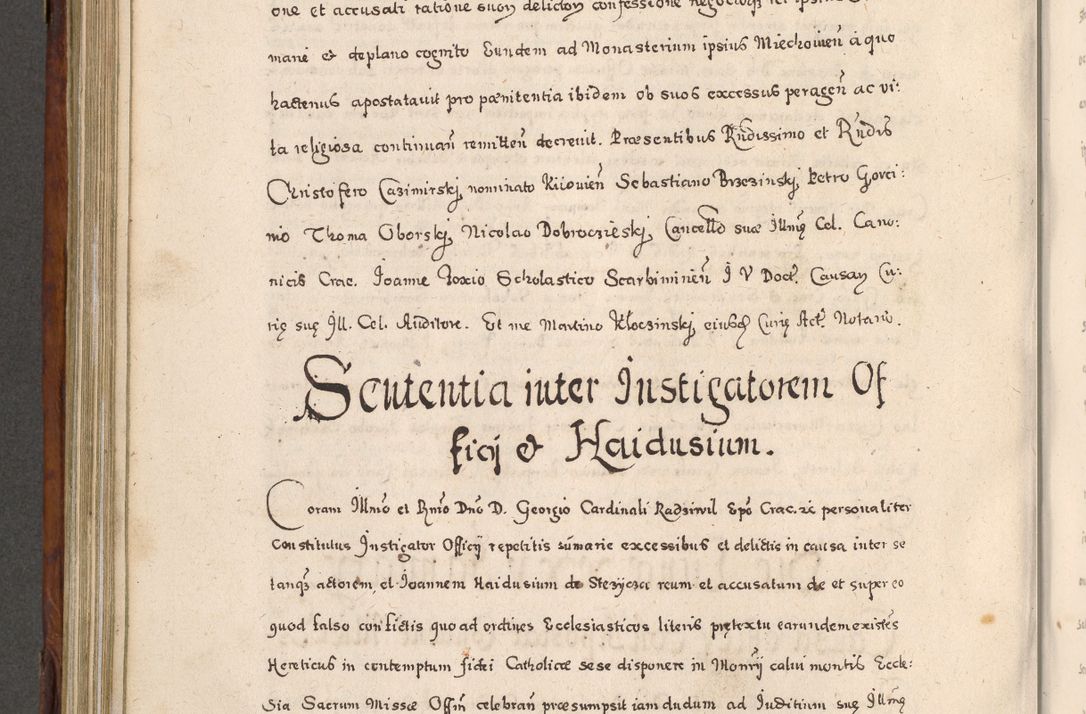 one et accusati ratione suoy delictoy confessione
marie & deplano cognito Eundem ad Monasterium ipsius Miechovieñ à quo
hactenus apostatavit pro pænitentia ibidem ob suos excessus perageñ ac vi:
ta religiosa continuañ remitteñ decrevit. Præsentibus Rñdissimo et Rñdis
Christofero Cazimirskj, nominato Kiiovieñ Sebastiano Brzezinskj, Petro Gorei:
nio Thoma Oborskj, Nicolao Dobroczieskj, Cancello suæ Illmę Cel. Cano:
nicis Crac. Joanne Foxio Scholastico Scarbimirieñ J V Doct. Causay Cu:
rię suę Ill. Cel. Auditore. Et me Martino Kłoczinskj eiusq Curię Act. Notario.
Sententia inter Instigatorem Of
ficij & Haidusium.
Coram Illmo et Rmo Dno D. Georgio Cardinali Radziwil Epo Crac. zc personaliter
constitutus Instigator Officij repetitis sumarie excessibus et delictis in causa inter se
tanq actorem, et Joannem Haidusium de Stezycza reum et accusatum de et super eo
quod falso confictis quo ad ordines Ecclesiasticos literis prętextu earundem existes
Hereticus in contemptum fidei Catholicæ sese disponere in Monrij calvi montis Eccle:
sia Sacrum Missæ Offiñ celebrañ præsumpsit iam dudum ad Iuditium suę Illmę